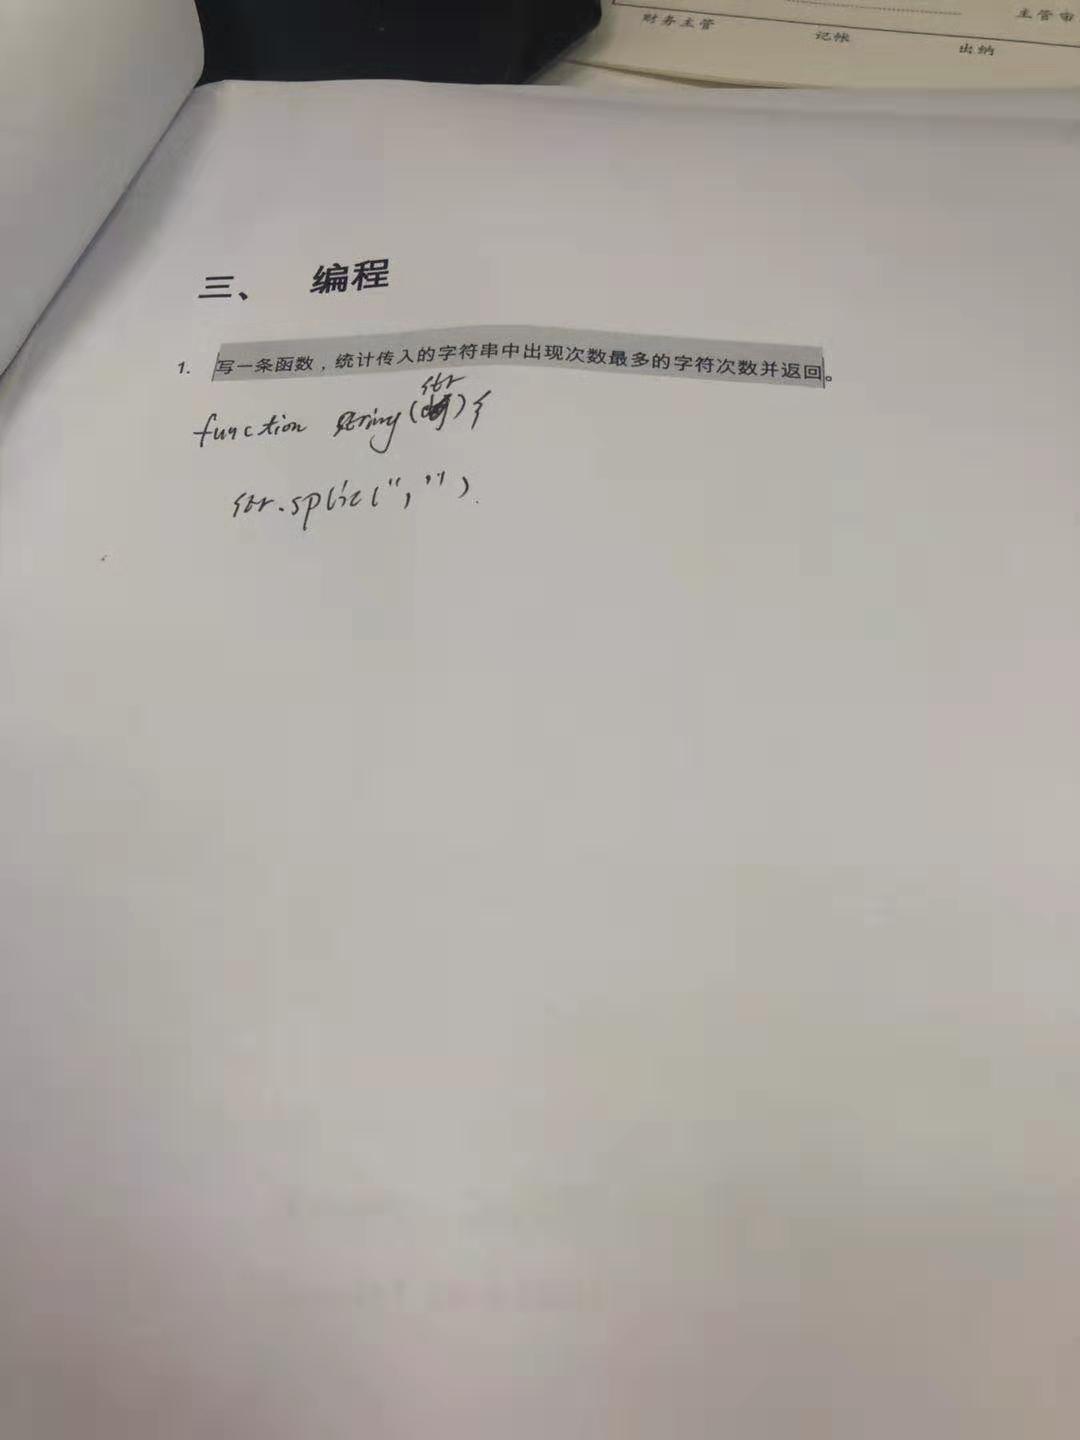 财务主管 记帐 出纳 主管审
三、 编程
1. 写一条函数，统计传入的字符串中出现次数最多的字符次数并返回。
str
function string( ){
str.split(",")